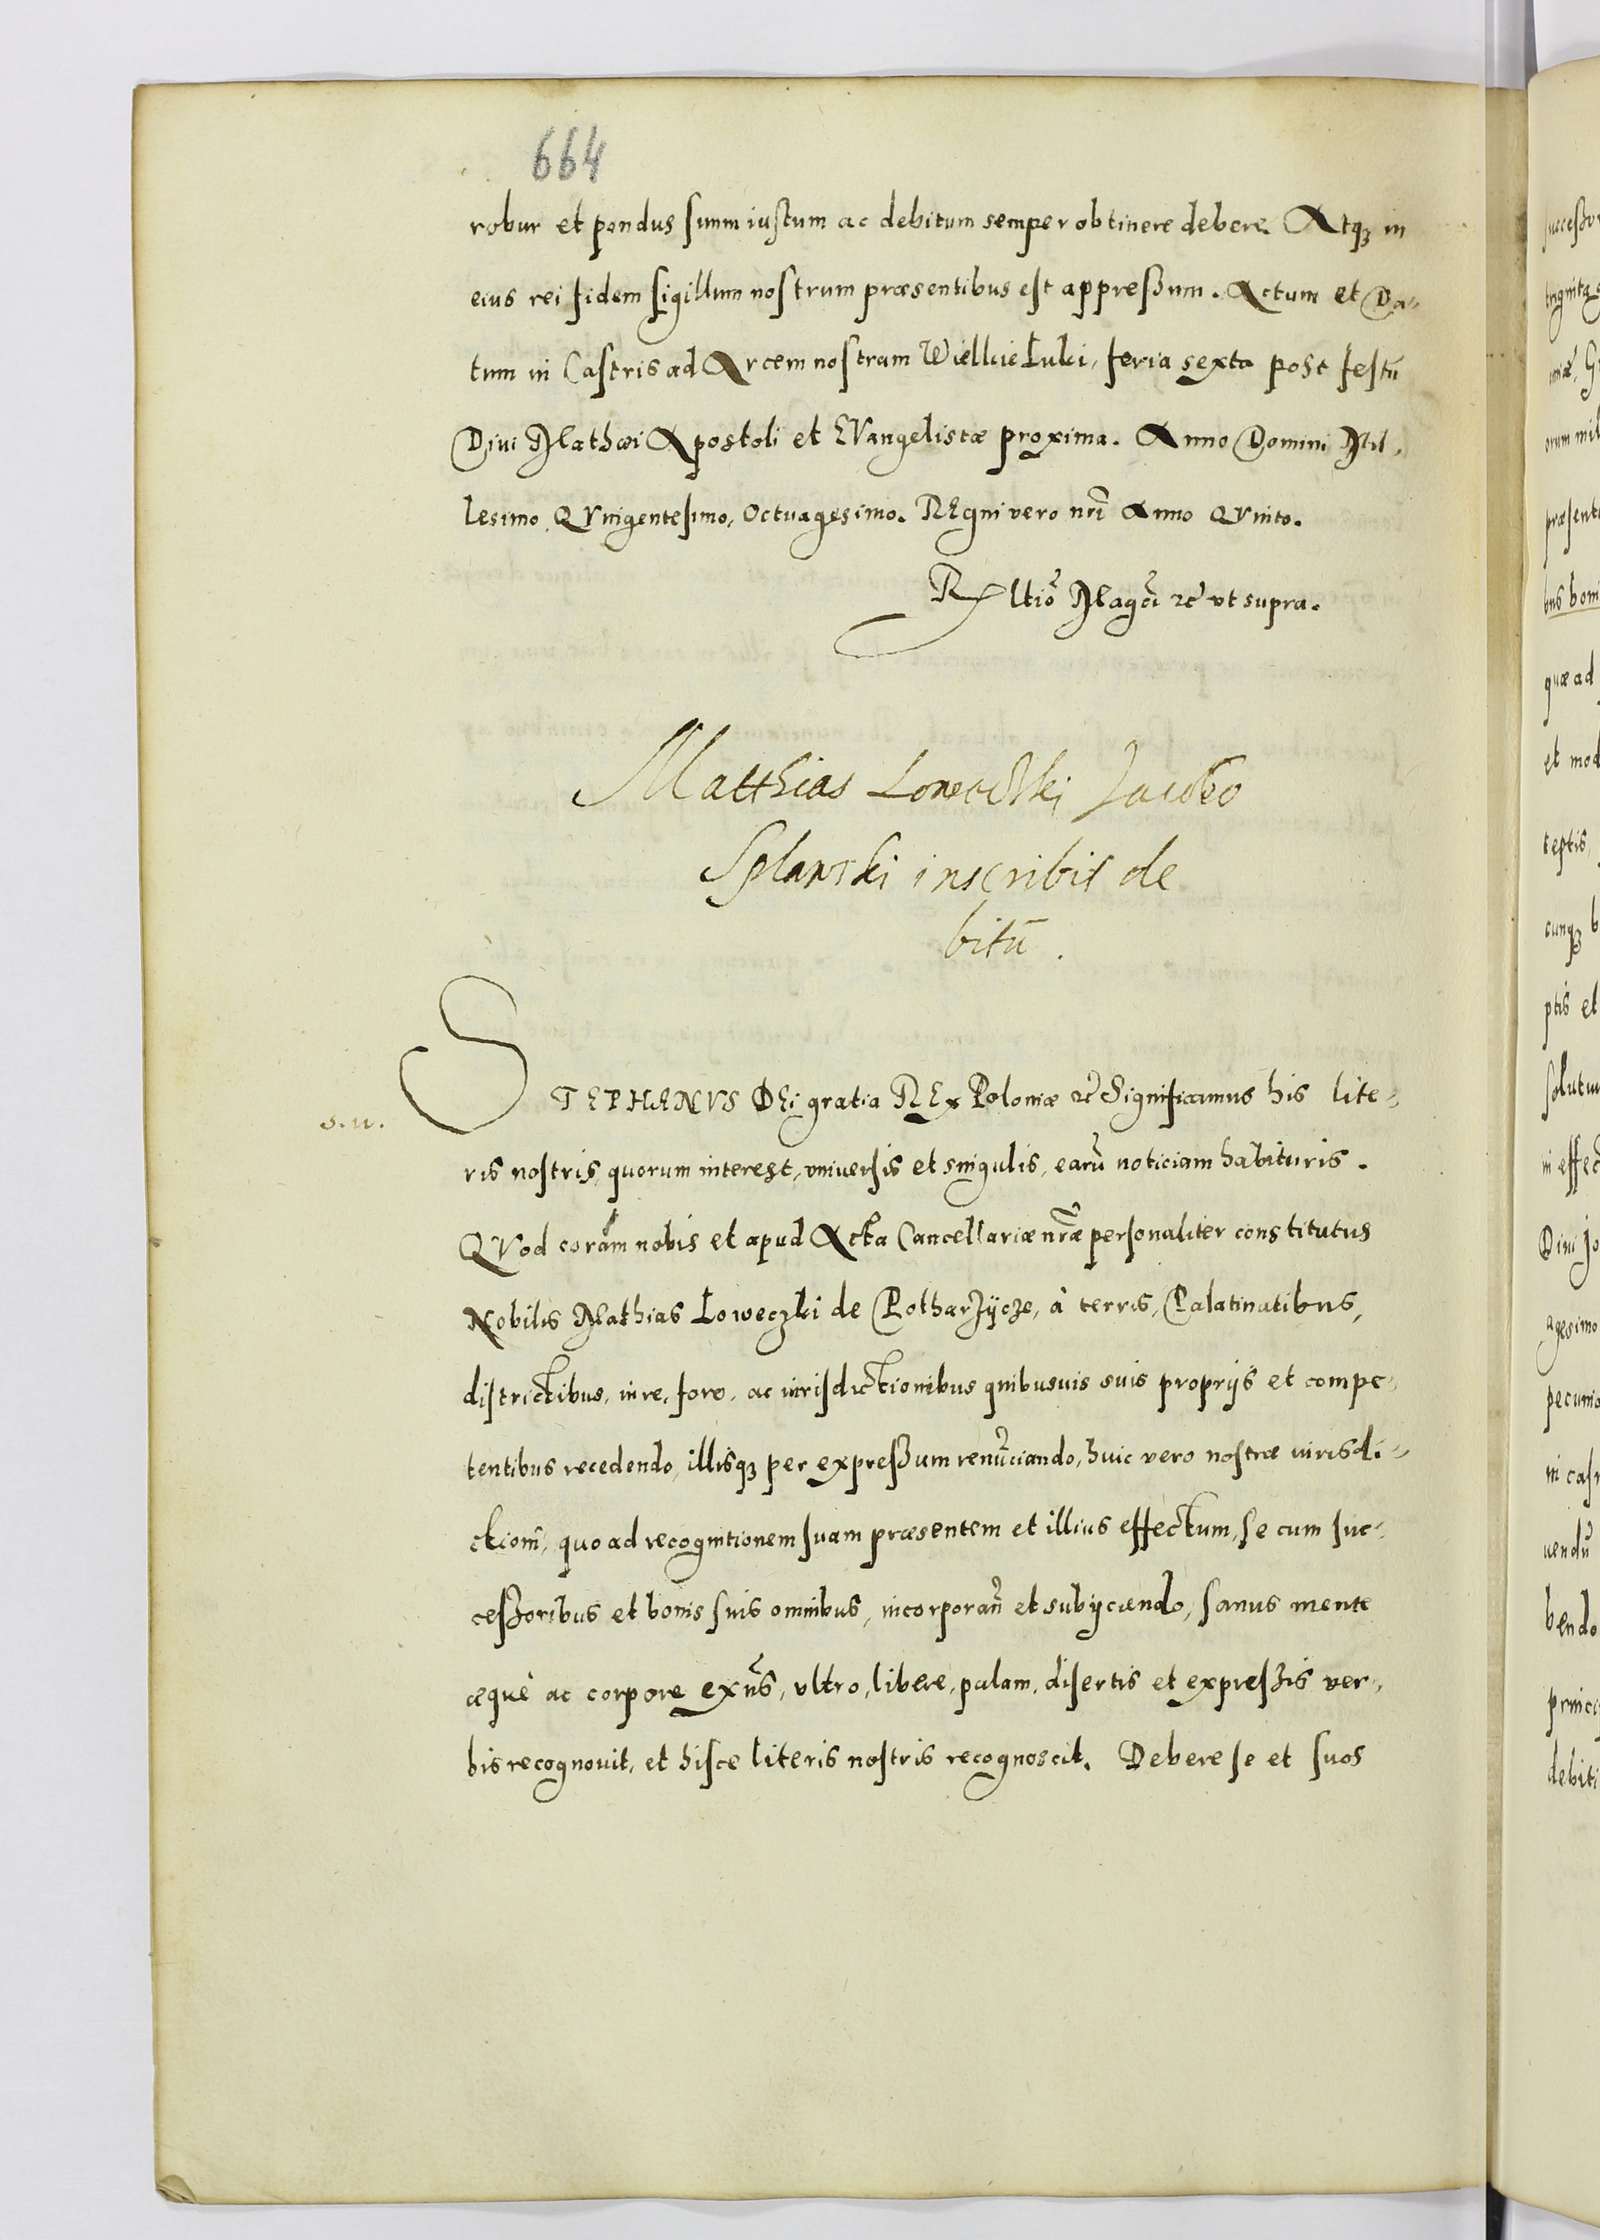 664
robur et pondus suum iustum ac debitum semper obtinere debere. Atqʒ in
eius rei fidem sigillum nostrum præsentibus est appreßum. Actum et Da-
tum in Castris ad Arcem nostram Wielkie Luki, feria sexta post festū
Divi Mathæi Apostoli et EVangelistæ proxima. Anno Domini Mil-
lesimo QVingentesimo, Octuagesimo. REgni vero nr̃i Anno QVinto.
Rltiõ Magc̃i etc̃ vt supra.
Matthias Loweczki Jacobo
Splawski inscribit de
bitū.
s. w.
STEPHANVS DEi gratia REx Poloniæ etc̃ Significamus his lite-
ris nostris, quorum interest, vniversis et singulis, earū noticiam habituris.
QVod coram nobis et apud Acta Cancellariæ nr̃æ personaliter constitutus
Nobilis Mathias Loweczki de Potharzÿcze, à terris, Palatinatibus,
districtibus, iure, foro, ac iurisdictionibus quibusuis suis proprijs et compe-
tentibus recedendo, illisqʒ per expreßum renūciando, huic vero nostræ iurisdi-
ctioni, quo ad recognitionem suam præsentem et illius effectum, se cum suc-
ceßoribus et bonis suis omnibus, incorporan̄ et subijciendo, sanus mente
æquè ac corpore exñs, vltro, libere, palam, disertis et expreßis ver-
bis recognovit, et hisce literis nostris recognoscit. Debere se et suos